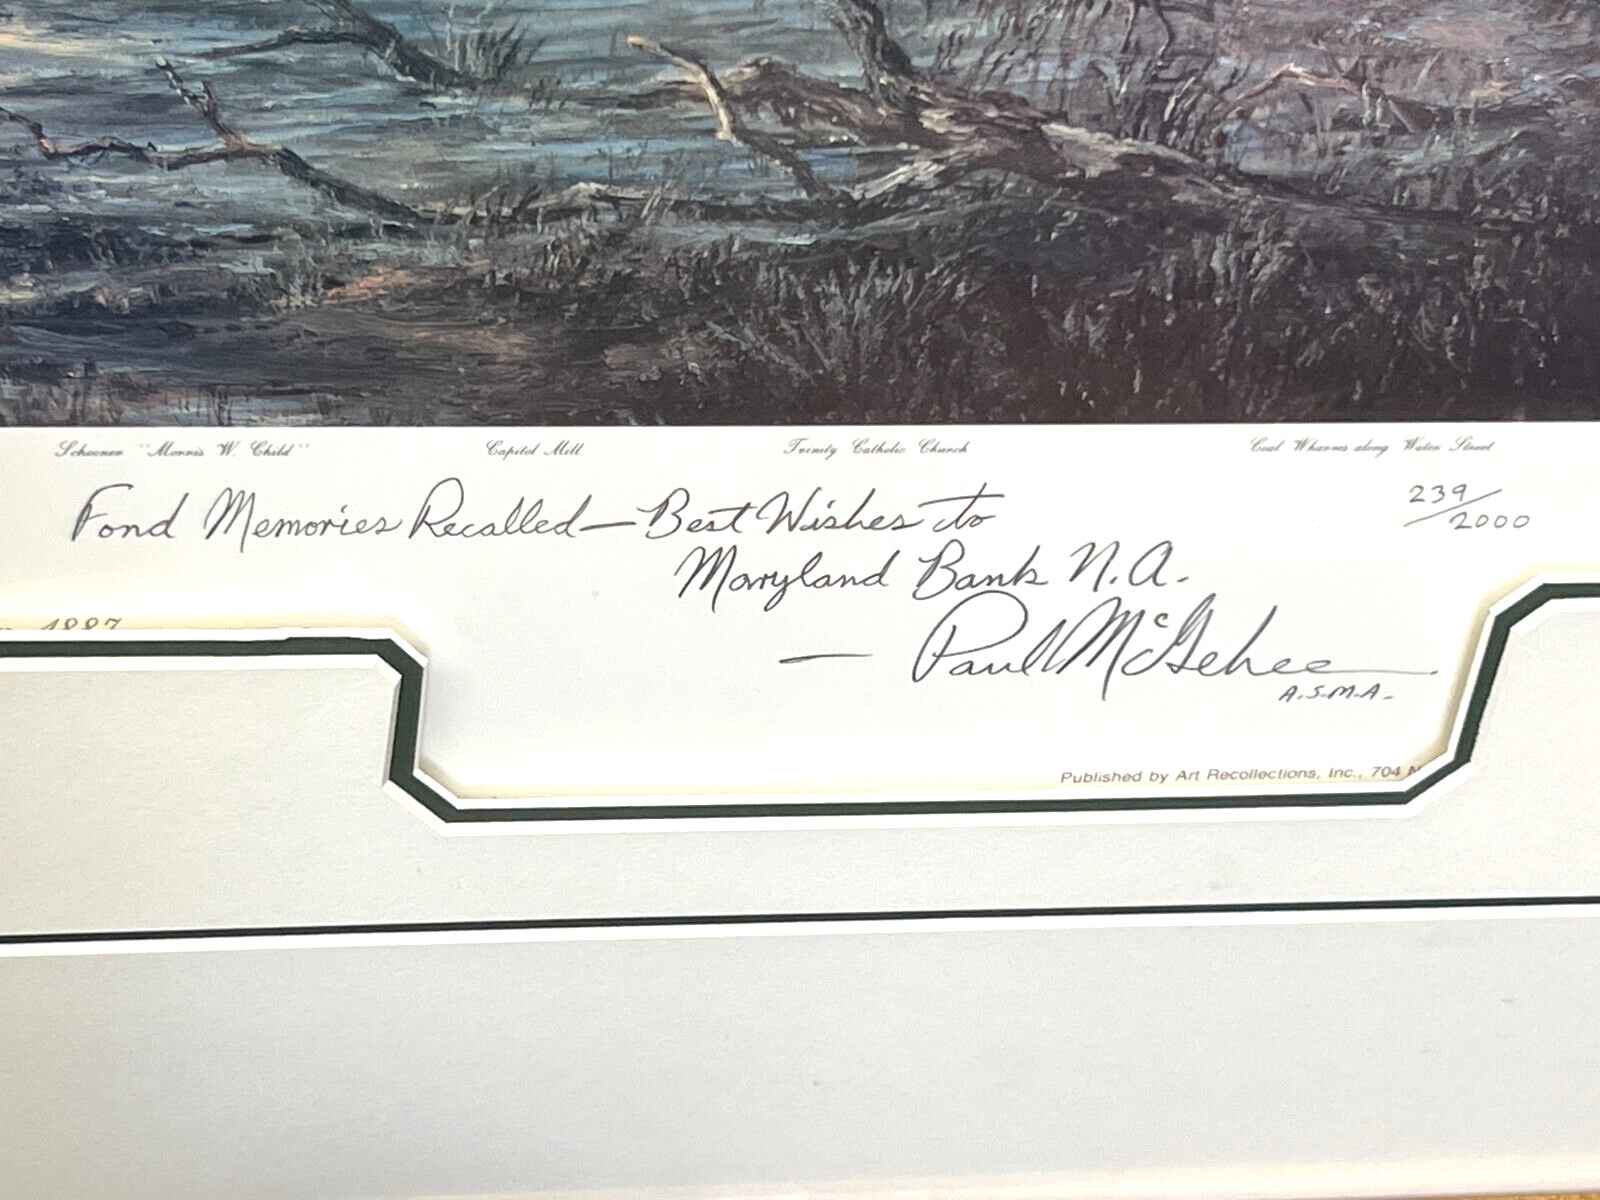 Schooner "Morris W. Child"    Capitol Mill    Trinity Catholic Church    Coal Wharves along Water Street
Fond Memories Recalled — Best Wishes to
Maryland Bank N.A.
239/2000
— Paul McGehee
A.S.M.A.
1887
Published by Art Recollections, Inc., 704 N